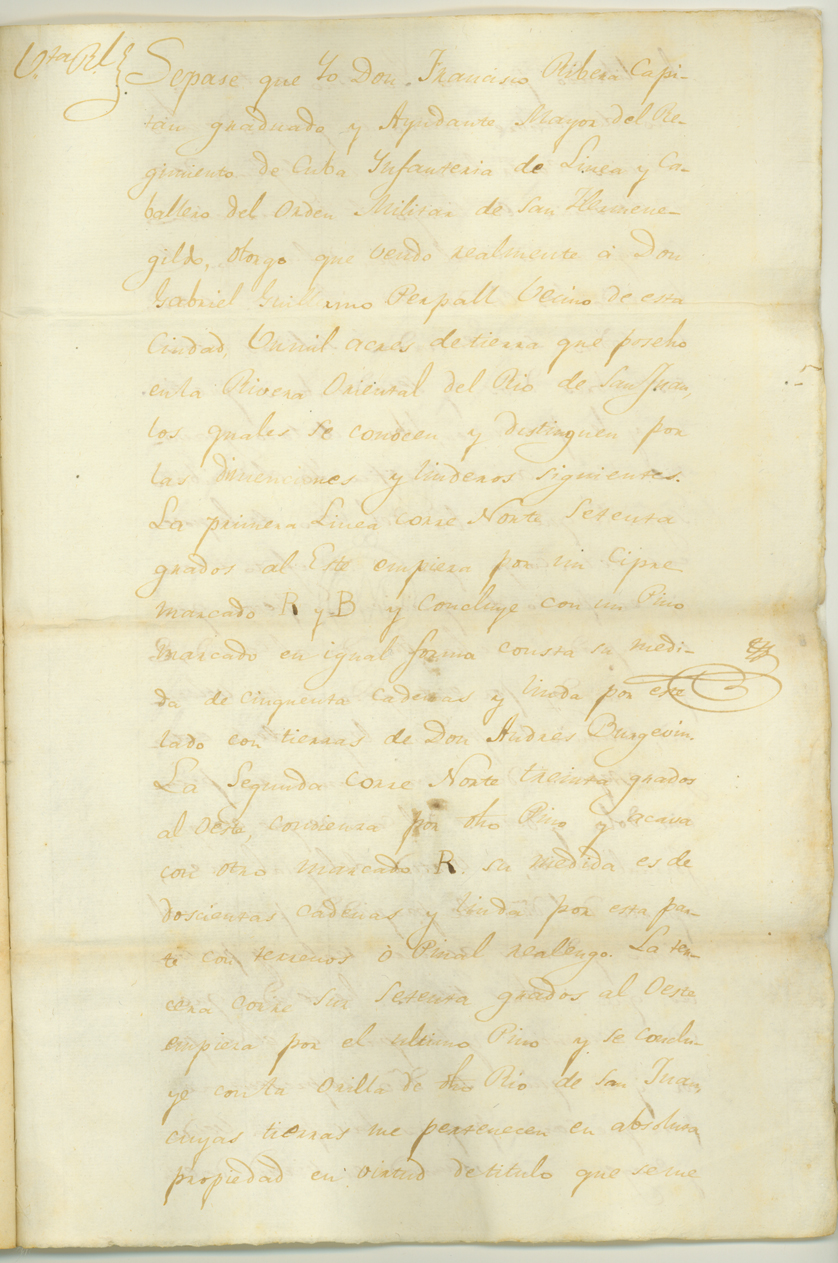 V.ta Rl. Sepase que Yo Don Francisco Ribera Capi-
tan graduado y Ayudante Mayor del Re-
gimiento de Cuba Ynfanteria de Linea y Ca-
ballero del Orden Militar de San Hermene-
gildo, otorgo que vendo realmente á Don
Gabriel Guillermo Perpall Vecino de esta
Ciudad, Un mil acres de tierra que poseho
en la Rivera Oriental del Rio de San Juan,
los quales se conocen y distinguen por
las dimenciones y linderos siguientes.
La primera Linea corre Norte Setenta
grados al Este empieza por un Cipre
marcado R y B y Concluye con un Pino
marcado en igual forma consta su medi-
da de cinquenta Cadenas y linda por este
lado con tierras de Don Andres Burgevin.
La Segunda corre Norte treinta grados
al Oeste, comienza por dho Pino y acava
con otro marcado R. su medida es de
doscientas cadenas y linda por esta par-
te con terrenos ó Pinal realengo. La ter-
cera corre Sur Setenta grados al Oeste
empieza por el ultimo Pino y se conclu-
ye con la Orilla de dho Rio de San Juan,
cuyas tierras me pertenecen en absoluta
propiedad en virtud de titulo que se me